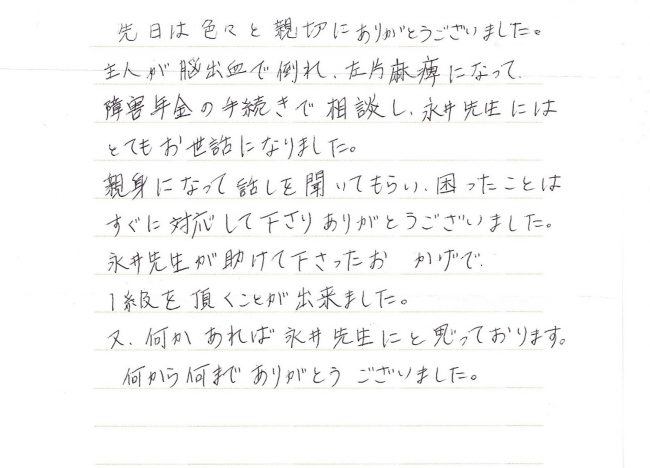 先日は色々と親切にありがとうございました。
主人が脳出血で倒れ、左片麻痺になって、
障害年金の手続きで相談し、永井先生には
とてもお世話になりました。
親身になって話しを聞いてもらい、困ったことは
すぐに対応して下さりありがとうございました。
永井先生が助けて下さったお かげで、
1級を頂くことが出来ました。
又、何かあれば永井先生にと思っております。
何から何までありがとう ございました。